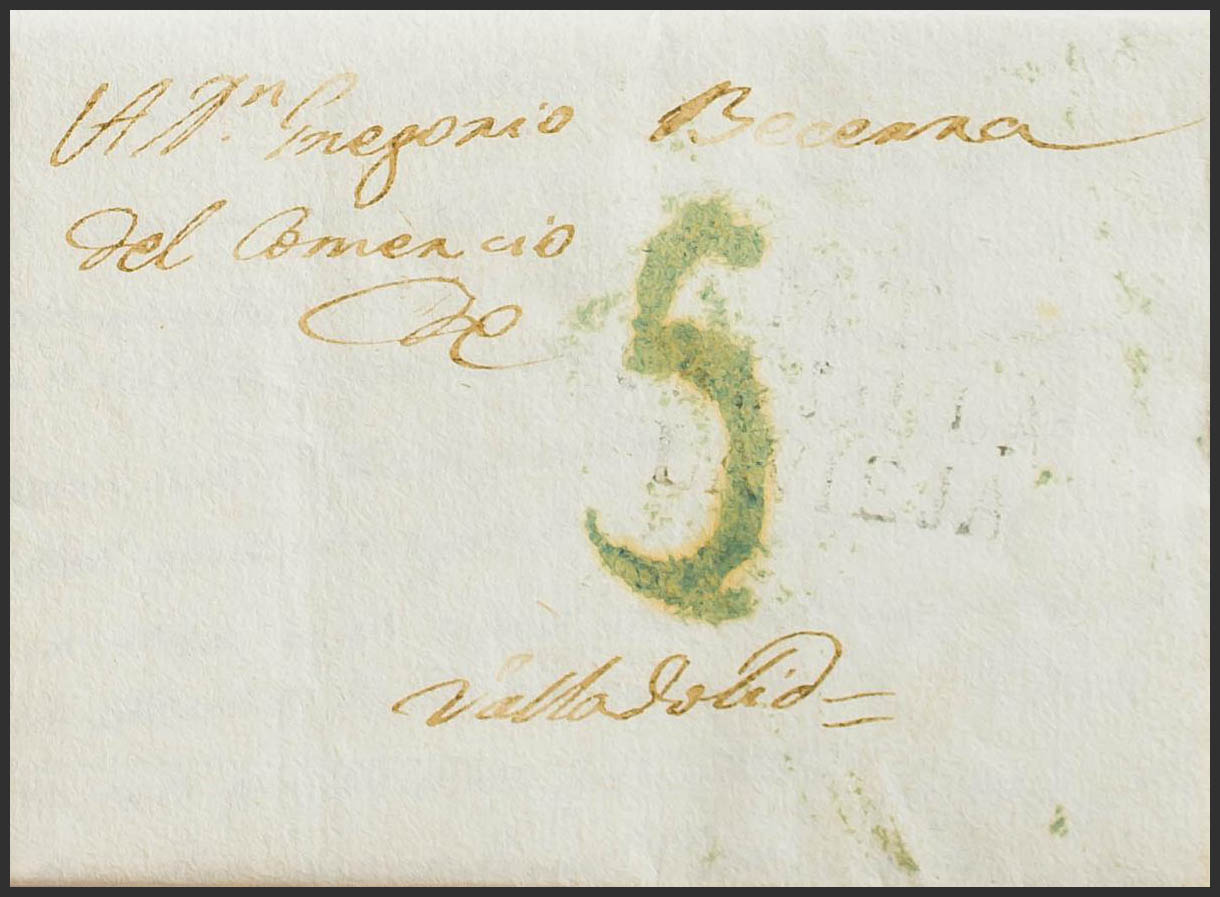 A Dn. Gregorio Becerra
del Comercio
de
5
Valladolid=